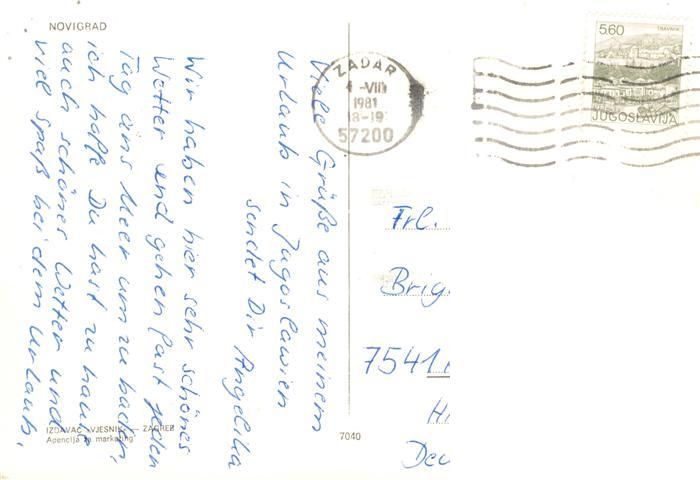 NOVIGRAD
Viele Grüße aus meinem
Urlaub in Jugoslawien
sendet Dir Angelika
Wir haben hier sehr schönes
Wetter und gehen fast jeden
Tag ans Meer um zu baden,
ich hoffe Du hast zu hause
auch schönes Wetter und
viel spaß bei dem Urlaub.
IZDAVAČ „VJESNIK" — ZAGREB
Agencija za marketing
7040
ZADAR
-VIII
1981
18-19
57200
5.60
TRAVNIK
JUGOSLAVIJA
Frl.
Brig
7541
H
Deu